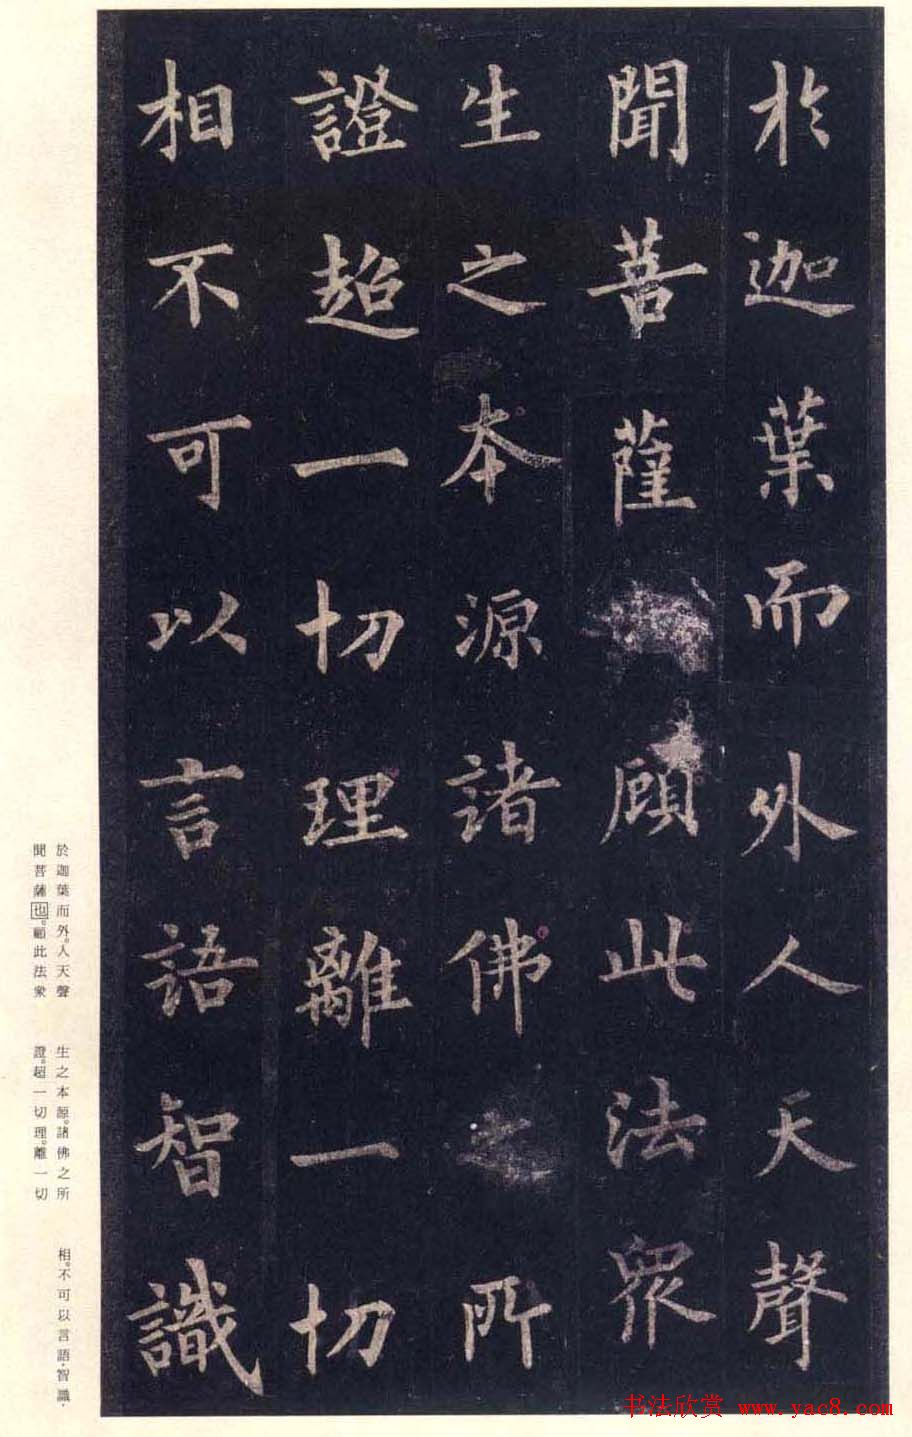 於迦葉而外人天聲
聞菩薩顧此法衆
生之本源諸佛之所
證超一切理離一切
相不可以言語智識
於迦葉而外。人天聲
聞菩薩也。顧此法衆
生之本源。諸佛之所
證。超一切理。離一切
相。不可以言語·智識·
书法欣赏 www.yac8.com